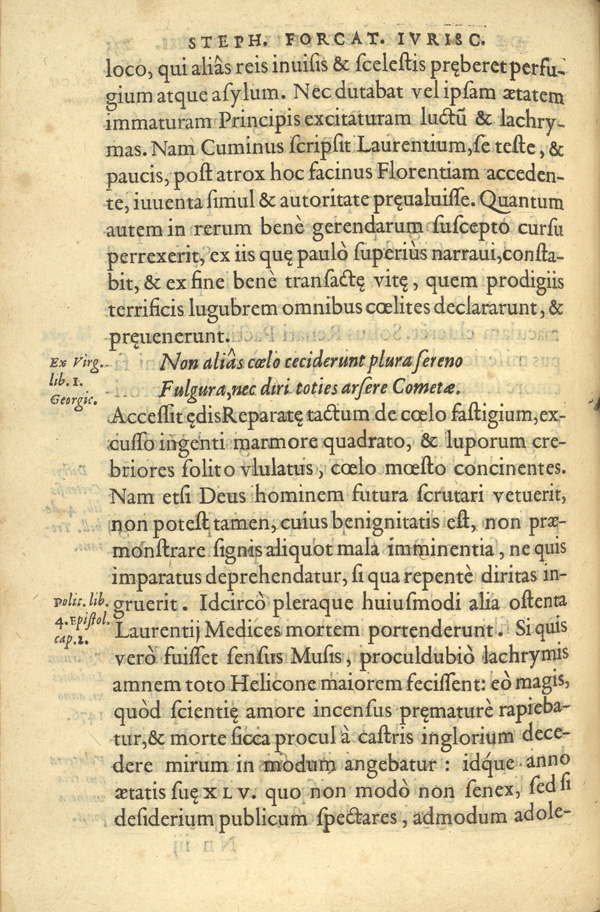 STEPH. FORCAT. IVRISC.
loco, qui aliâs reis inuisis & scelestis pręberet perfu-
gium atque asylum. Nec dutabat vel ipsam ætatem
immaturam Principis excitaturam luctũ & lachry-
mas. Nam Cuminus scripsit Laurentium, se teste, &
paucis, post atrox hoc facinus Florentiam acceden-
te, iuuenta simul & autoritate pręualuisse. Quantum
autem in rerum benè gerendarum suscepto cursu
perrexerit, ex iis quę paulò superiùs narraui, consta-
bit, & ex fine benè transactę vitę, quem prodigiis
terrificis lugubrem omnibus cœlites declararunt, &
pręuenerunt.
Ex Virg.
lib. 1.
Georgic.
Non aliâs cœlo ceciderunt plura sereno
Fulgura, nec diri toties arsere Cometæ.
Accessit ędis Reparatę tactum de cœlo fastigium, ex-
cusso ingenti marmore quadrato, & luporum cre-
briores solito vlulatus, cœlo mœsto concinentes.
Nam etsi Deus hominem futura scrutari vetuerit,
non potest tamen, cuius benignitatis est, non præ-
monstrare signis aliquot mala imminentia, ne quis
imparatus deprehendatur, si qua repentè diritas in-
Polic. lib.
4. Epistol.
cap. 1.
gruerit. Idcircò pleraque huiusmodi alia ostenta
Laurentij Medices mortem portenderunt. Si quis
verò fuisset sensus Musis, proculdubiò lachrymis
amnem toto Helicone maiorem fecissent: eò magis,
quòd scientię amore incensus pręmaturè rapieba-
tur, & morte sicca procul à castris inglorium dece-
dere mirum in modum angebatur : idque anno
ætatis suę XLV. quo non modò non senex, sed si
desiderium publicum spectares, admodum adole-
N n iij